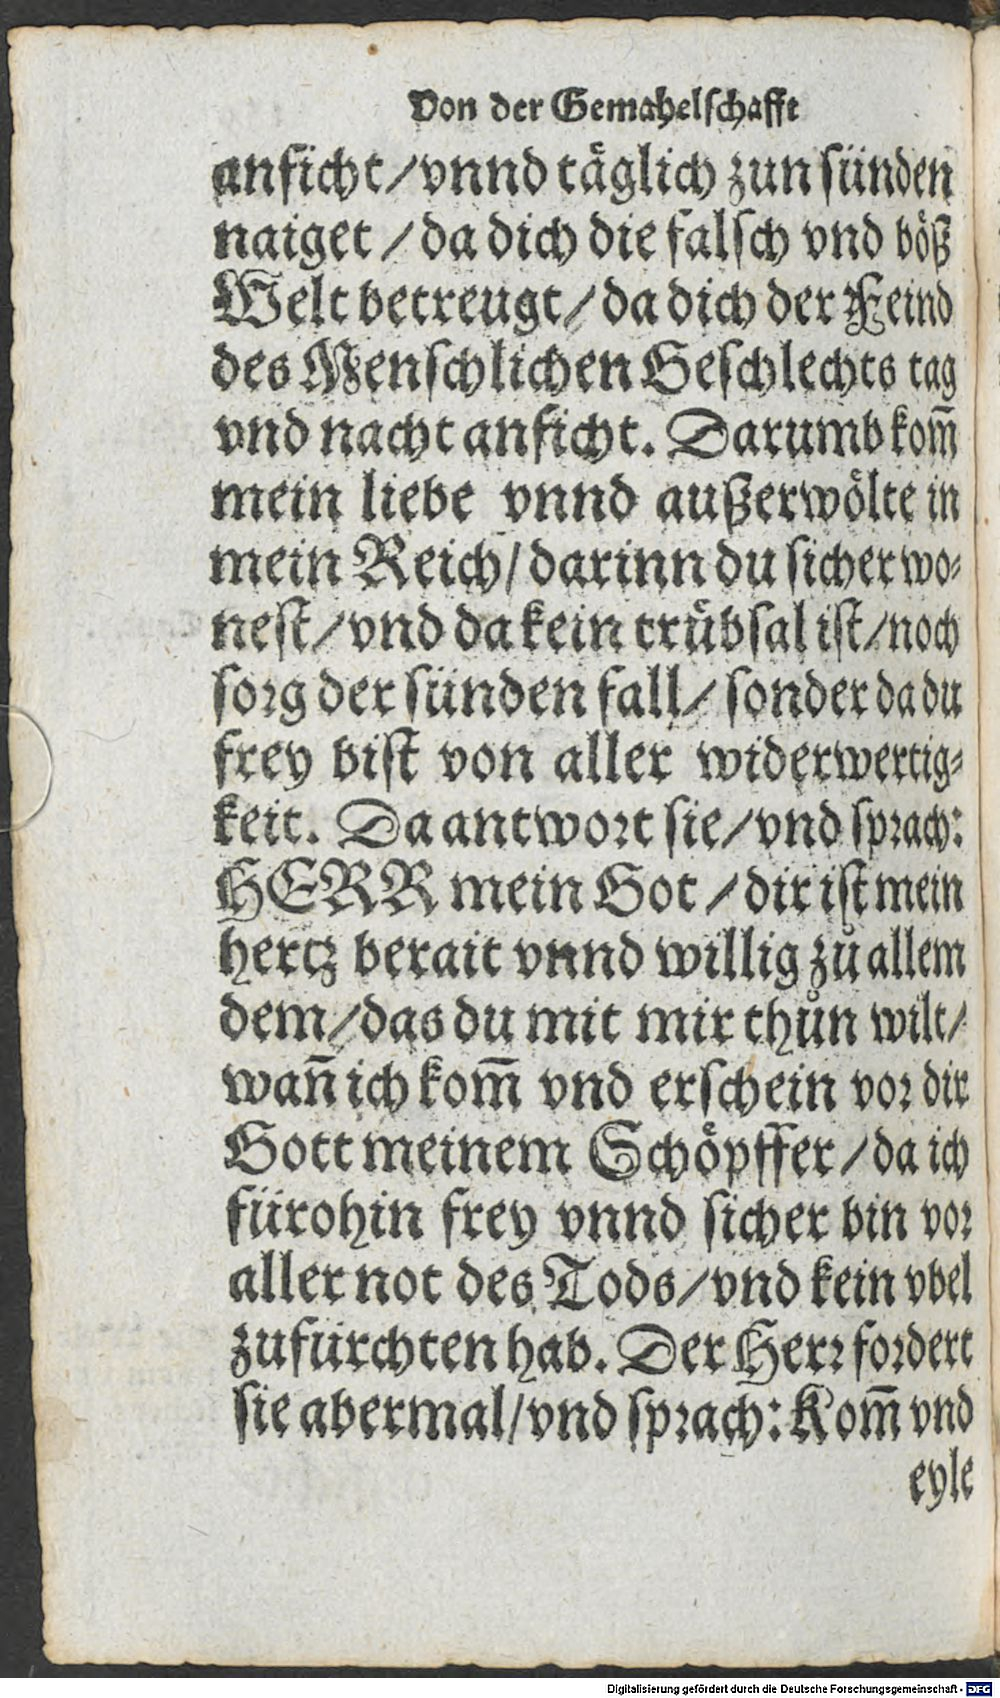 Von der Gemahelschafft
anficht/vnnd täglich zun sünden
naiget / da dich die falsch vnd böß
Welt betreugt/da dich der Feind
des Menschlichen Geschlechts tag
vnd nacht anficht. Darumb kom̃
mein liebe vnnd außerwölte in
mein Reich/darinn du sicher wo⸗
nest/vnd da kein trübsal ist/noch
sorg der sünden fall/ sonder da du
frey bist von aller widerwertig⸗
keit. Da antwort sie/vnd sprach:
HERR mein Got / dir ist mein
hertz berait vnnd willig zů allem
dem/das du mit mir thůn wilt/
wañ ich kom̃ vnd erschein vor dir
Gott meinem Schöpffer/da ich
fürohin frey vnnd sicher bin vor
aller not des Tods/vnd kein vbel
zufürchten hab. Der Herr fordert
sie abermal/vnd sprach: Kom̃ vnd
eyle
Digitalisierung gefördert durch die Deutsche Forschungsgemeinschaft - DFG